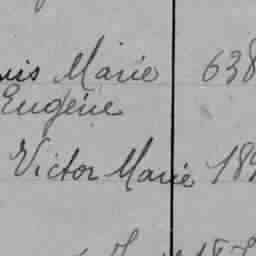 uis Marie 638
Eugénie
Victor Marie 189